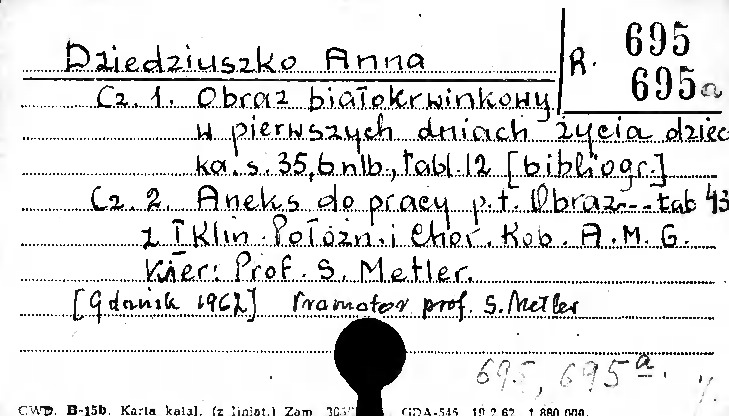 Dziedziuszko Anna
R. 695
695a
Cz. 1. Obraz białokrwinkowy
w pierwszych dniach życia dziec
ka. s. 35, 6 nlb., tabl. 12 [bibliogr.]
Cz. 2. Aneks do pracy p.t. Obraz... tab 43
z I Klin. Położn. i Chor. Kob. A. M. G.
Kier: Prof. S. Metler.
[Gdańsk 1962] Promotor prof. S. Metler
695, 695a.
CWD. B-15b. Karta katal. (z liniat.) Zam. GDA-545